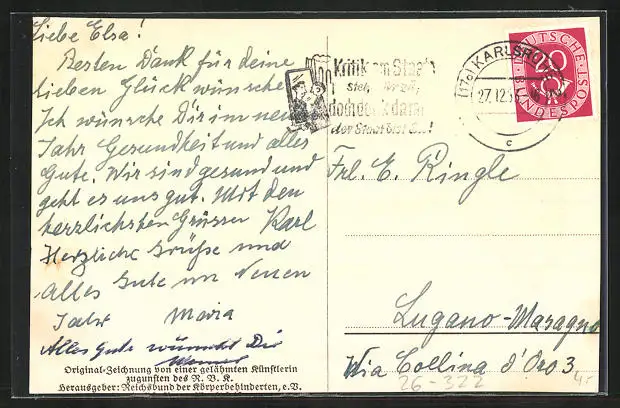 Liebe Elsa!
Besten Dank für deine
lieben Glückwünsche
Ich wünsche Dir im neuen
Jahr Gesundheit und alles
Gute. Wir sind gesund und
geht es uns gut. Mit den
herzlichsten Grüssen Karl
Herzliche Grüße und
Alles Gute im Neuen
Jahr Maria
Alles Gute wünscht Dir
Werner
Original-Zeichnung von einer gelähmten Künstlerin
zugunsten des R. B. K.
Herausgeber: Reichsbund der Körperbehinderten, e.V.
Kritik am Staat
doch denk daran
der Staat bist Du!
(17a) KARLSRUHE
27.12.53
c
DEUTSCHE BUNDESPOST
20
Frl. E. Ringle
Lugano-Massagno
Via Collina d'Oro 3,
26-322
4.-